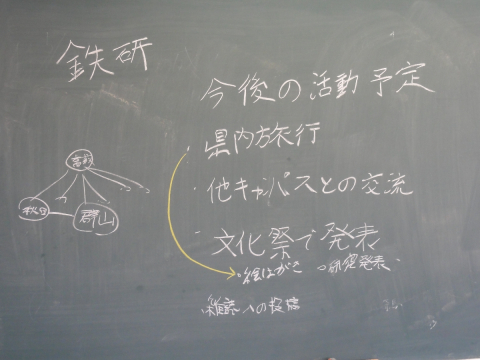 鉄研
今後の活動予定
・県内旅行
・他キャンパスとの交流
・文化祭で発表
・絵はがき ○研究発表
・雑誌への投稿
高校
秋田
郡山